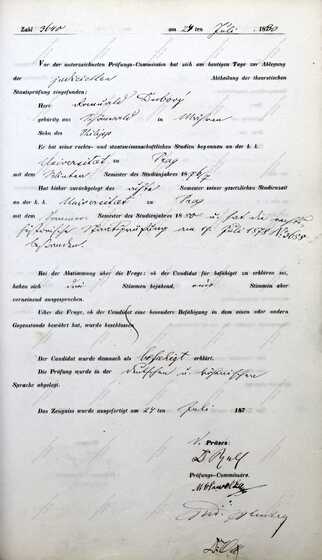 Zahl 3640 am 24 ten Juli 1880
Vor der unterzeichneten Prüfungs-Commission hat sich am heutigen Tage zur Ablegung
der judiciellen Abtheilung der theoretischen
Staatsprüfung eingefunden:
Herr Romuald
gebürtig aus Schönwald in Mähren
Sohn des Philipp
Er hat seine rechts- und staatswissenschaftlichen Studien begonnen an der k. k.
Universitet zu Prag
mit dem Winter Semester des Studienjahres 1876/7
Hat bisher zurückgelegt das achte Semester seiner gesetzlichen Studienzeit
an der k. k. Universitet zu Prag
mit dem Sommer Semester des Studienjahres 1880 u. hat die rechts-
historische Staatsprüfung am Juli 1878
bestanden.
Bei der Abstimmung über die Frage: ob der Candidat für befähiget zu erklären sei,
haben sich drei Stimmen bejahend, eine Stimmen aber
verneinend ausgesprochen.
Über die Frage, ob der Candidat eine besondere Befähigung in dem einen oder andern
Gegenstande bewährt hat, wurde beschlossen
Der Candidat wurde demnach als befähigt erklärt.
Die Prüfung wurde in der deutschen u. böhmischen
Sprache abgelegt.
Das Zeugniss wurde ausgefertigt am 24 ten Juli 187
Präses:
Prüfungs-Commissäre.